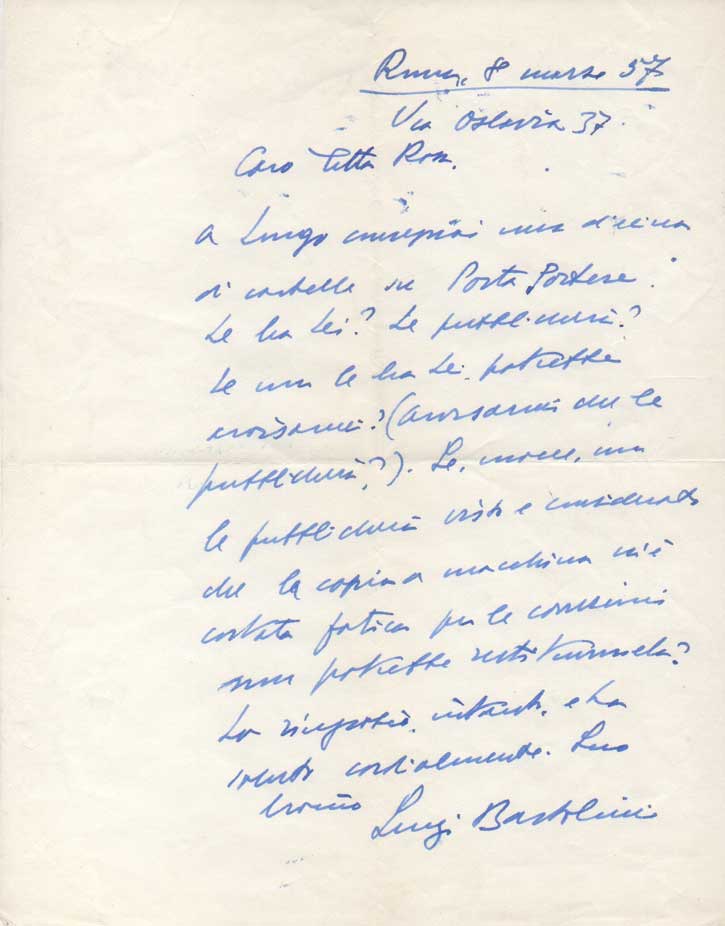 Roma, 8 marzo 57
Via Oslavia 37.
Caro Titta Rosa.
a Longo consegnai una diecina
di cartelle su Porta Portese.
Le ha Lei? Le pubblicherà?
Se non le ha Lei, potrebbe
avvisarmi? (avvisarmi che le
pubblicherà?). Se, invece, non
le pubblicherà visto e considerato
che la copia a macchina m'è
costata fatica per le correzioni
non potrebbe restituirmela?
La ringrazio, intanto, e La
saluto cordialmente. Suo
Luigi Bartolini